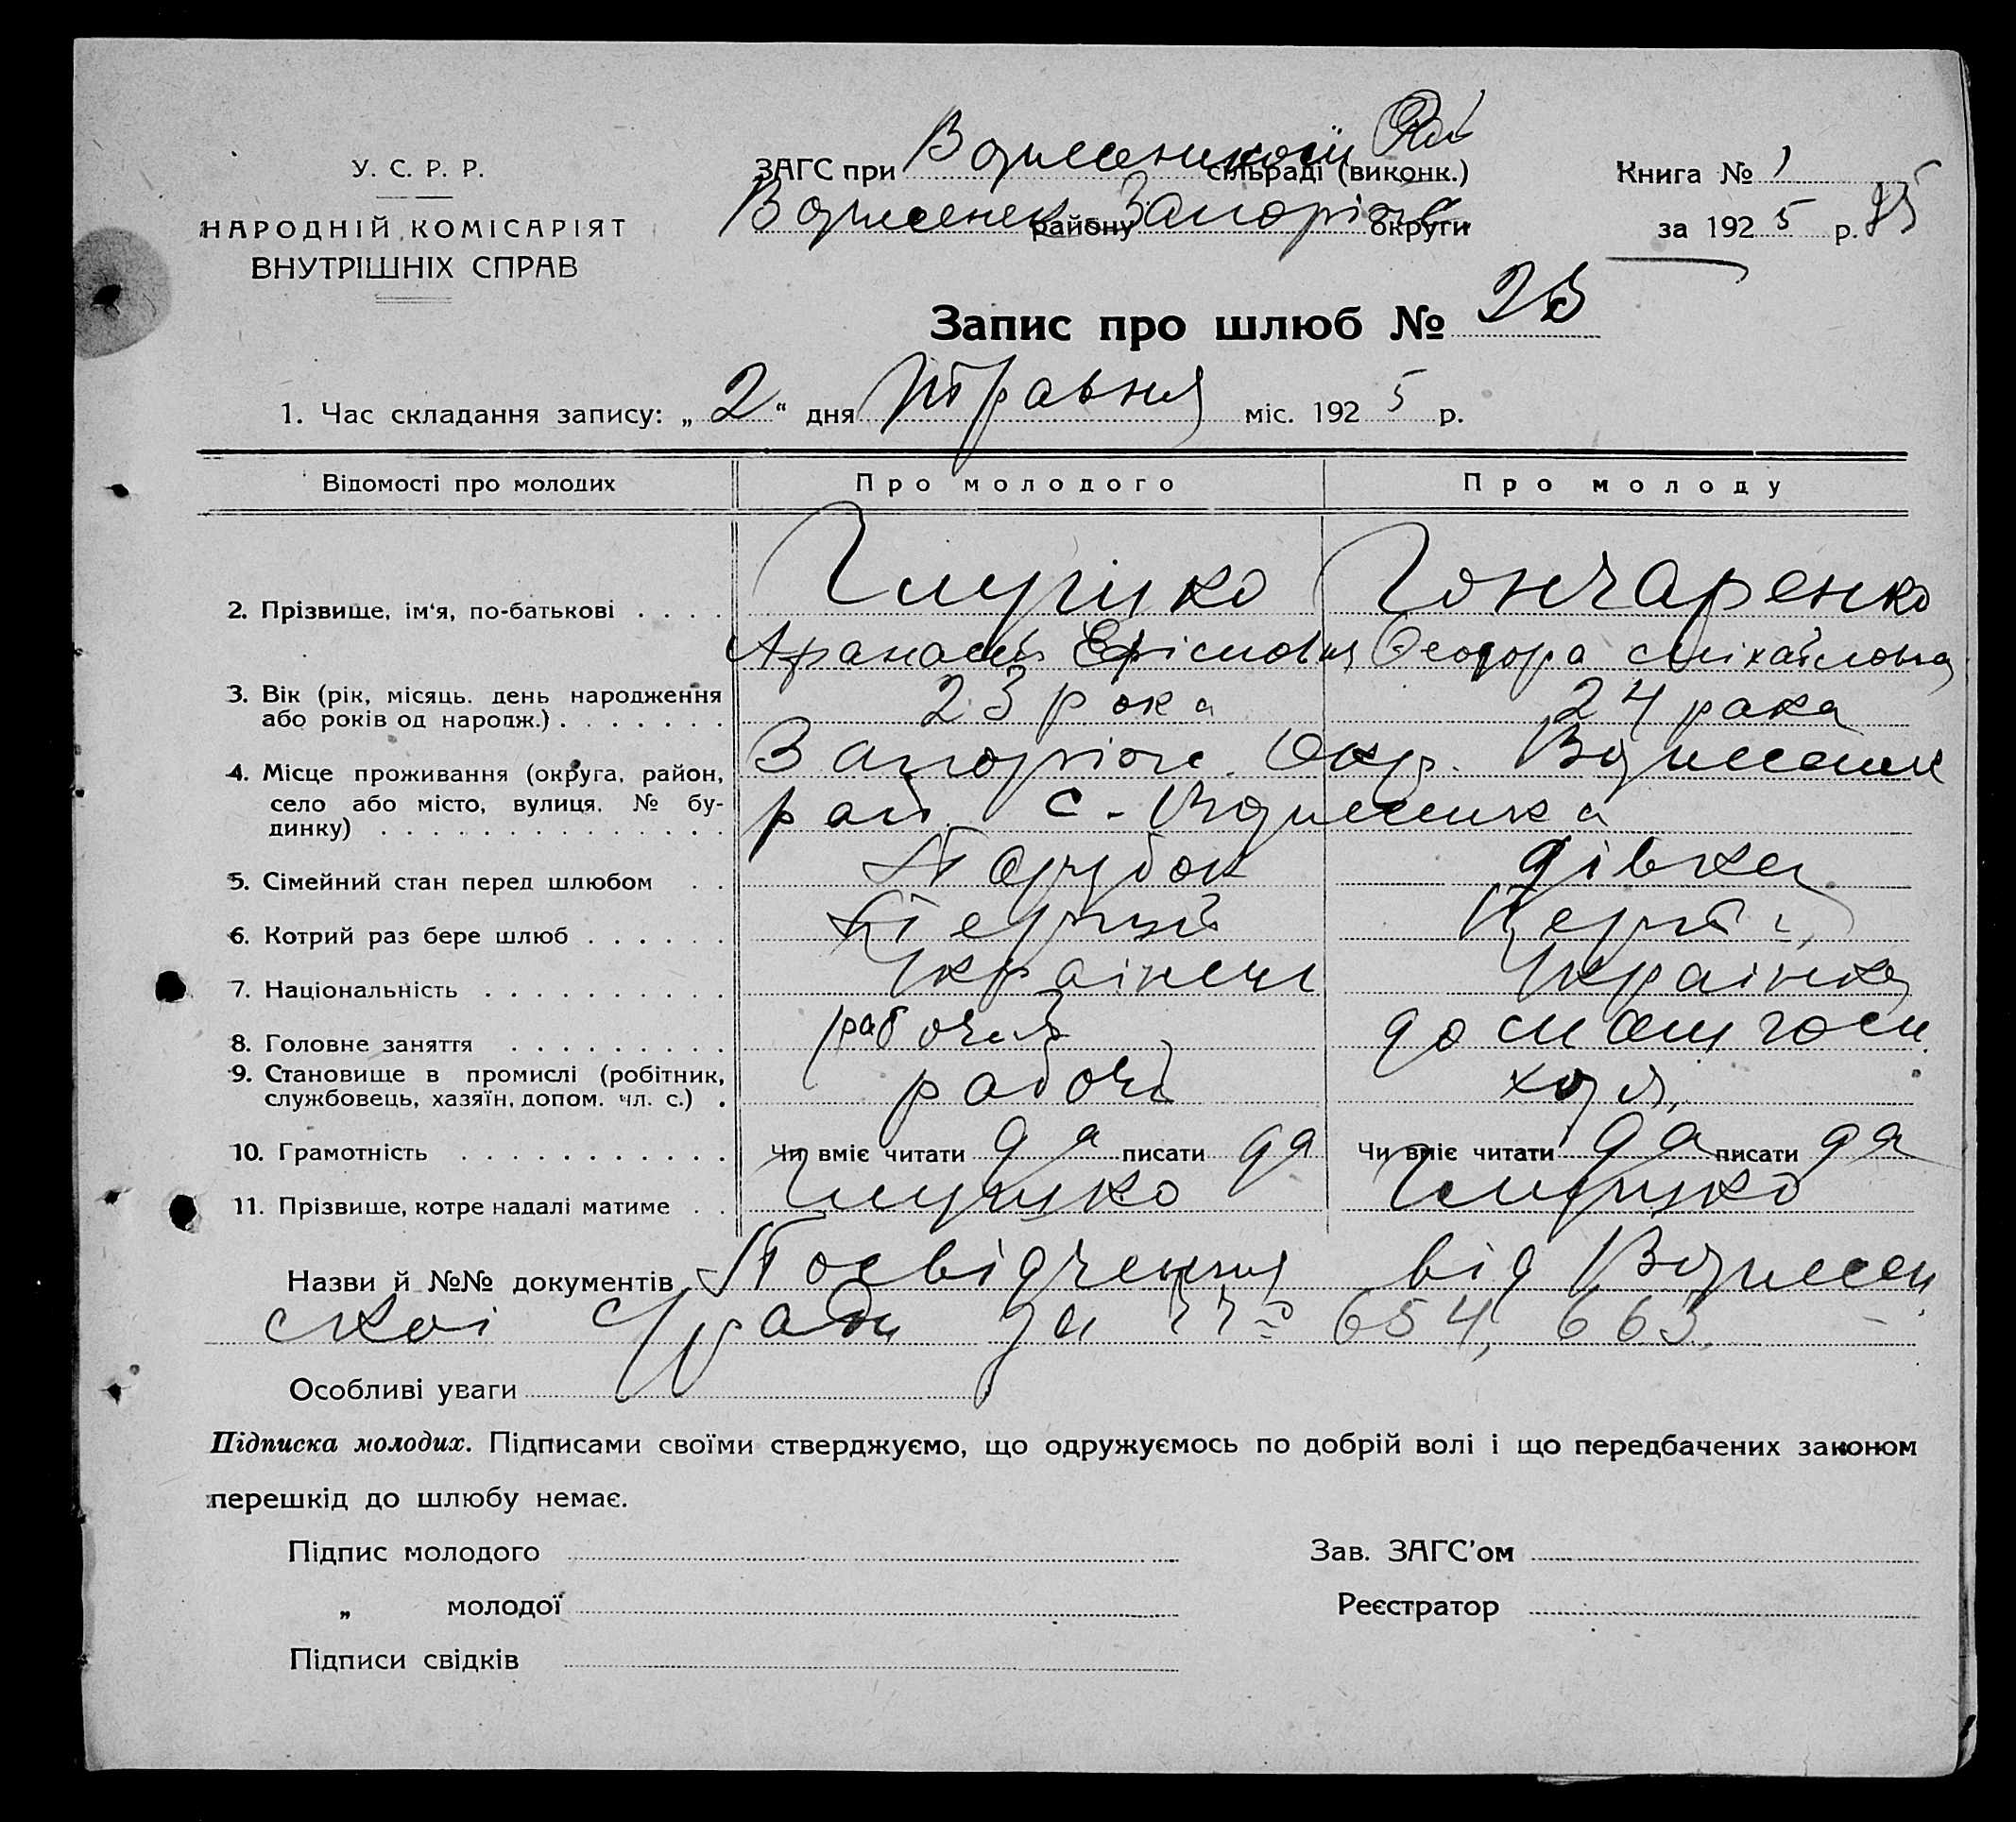 У. С. Р. Р.
НАРОДНІЙ КОМІСАРІЯТ
ВНУТРІШНІХ СПРАВ
ЗАГС при сільраді (виконк.)
Вознесенск району Запоріжс округи
Книга № 1
за 1925 р. 95
Запис про шлюб №
1. Час складання запису: „2“ дня Травня міс. 1925 р.
Відомості про молодих Про молодого Про молоду
2. Прізвище, ім'я, по-батькові Гончаренко
Афанасій Феодора Міхайловна
3. Вік (рік, місяць, день народження
або років од народж.) 23 рока 24 рака
4. Місце проживання (округа, район,
село або місто, вулиця, № бу-
динку)
Запоріж. Окр. Вознесенск
рай. с. Вознесенка
5. Сімейний стан перед шлюбом Парубок дівка
6. Котрий раз бере шлюб Первий
7. Національність Українець Українка
8. Головне заняття рабочий домашг госп.
9. Становище в промислі (робітник,
службовець, хазяїн, допом. чл. с.) рабочій
10. Грамотність Чи вміє читати да писати да Чи вміє читати да писати да
11. Прізвище, котре надалі матиме
Назви й №№ документів Посвідчення від Вознесен
скоі С/ради за 654, 663.
Особливі уваги
Підписка молодих. Підписами своїми стверджуємо, що одружуємось по добрій волі і що передбачених законом
перешкід до шлюбу немає.
Підпис молодого Зав. ЗАГС'ом
„ молодої Реєстратор
Підписи свідків